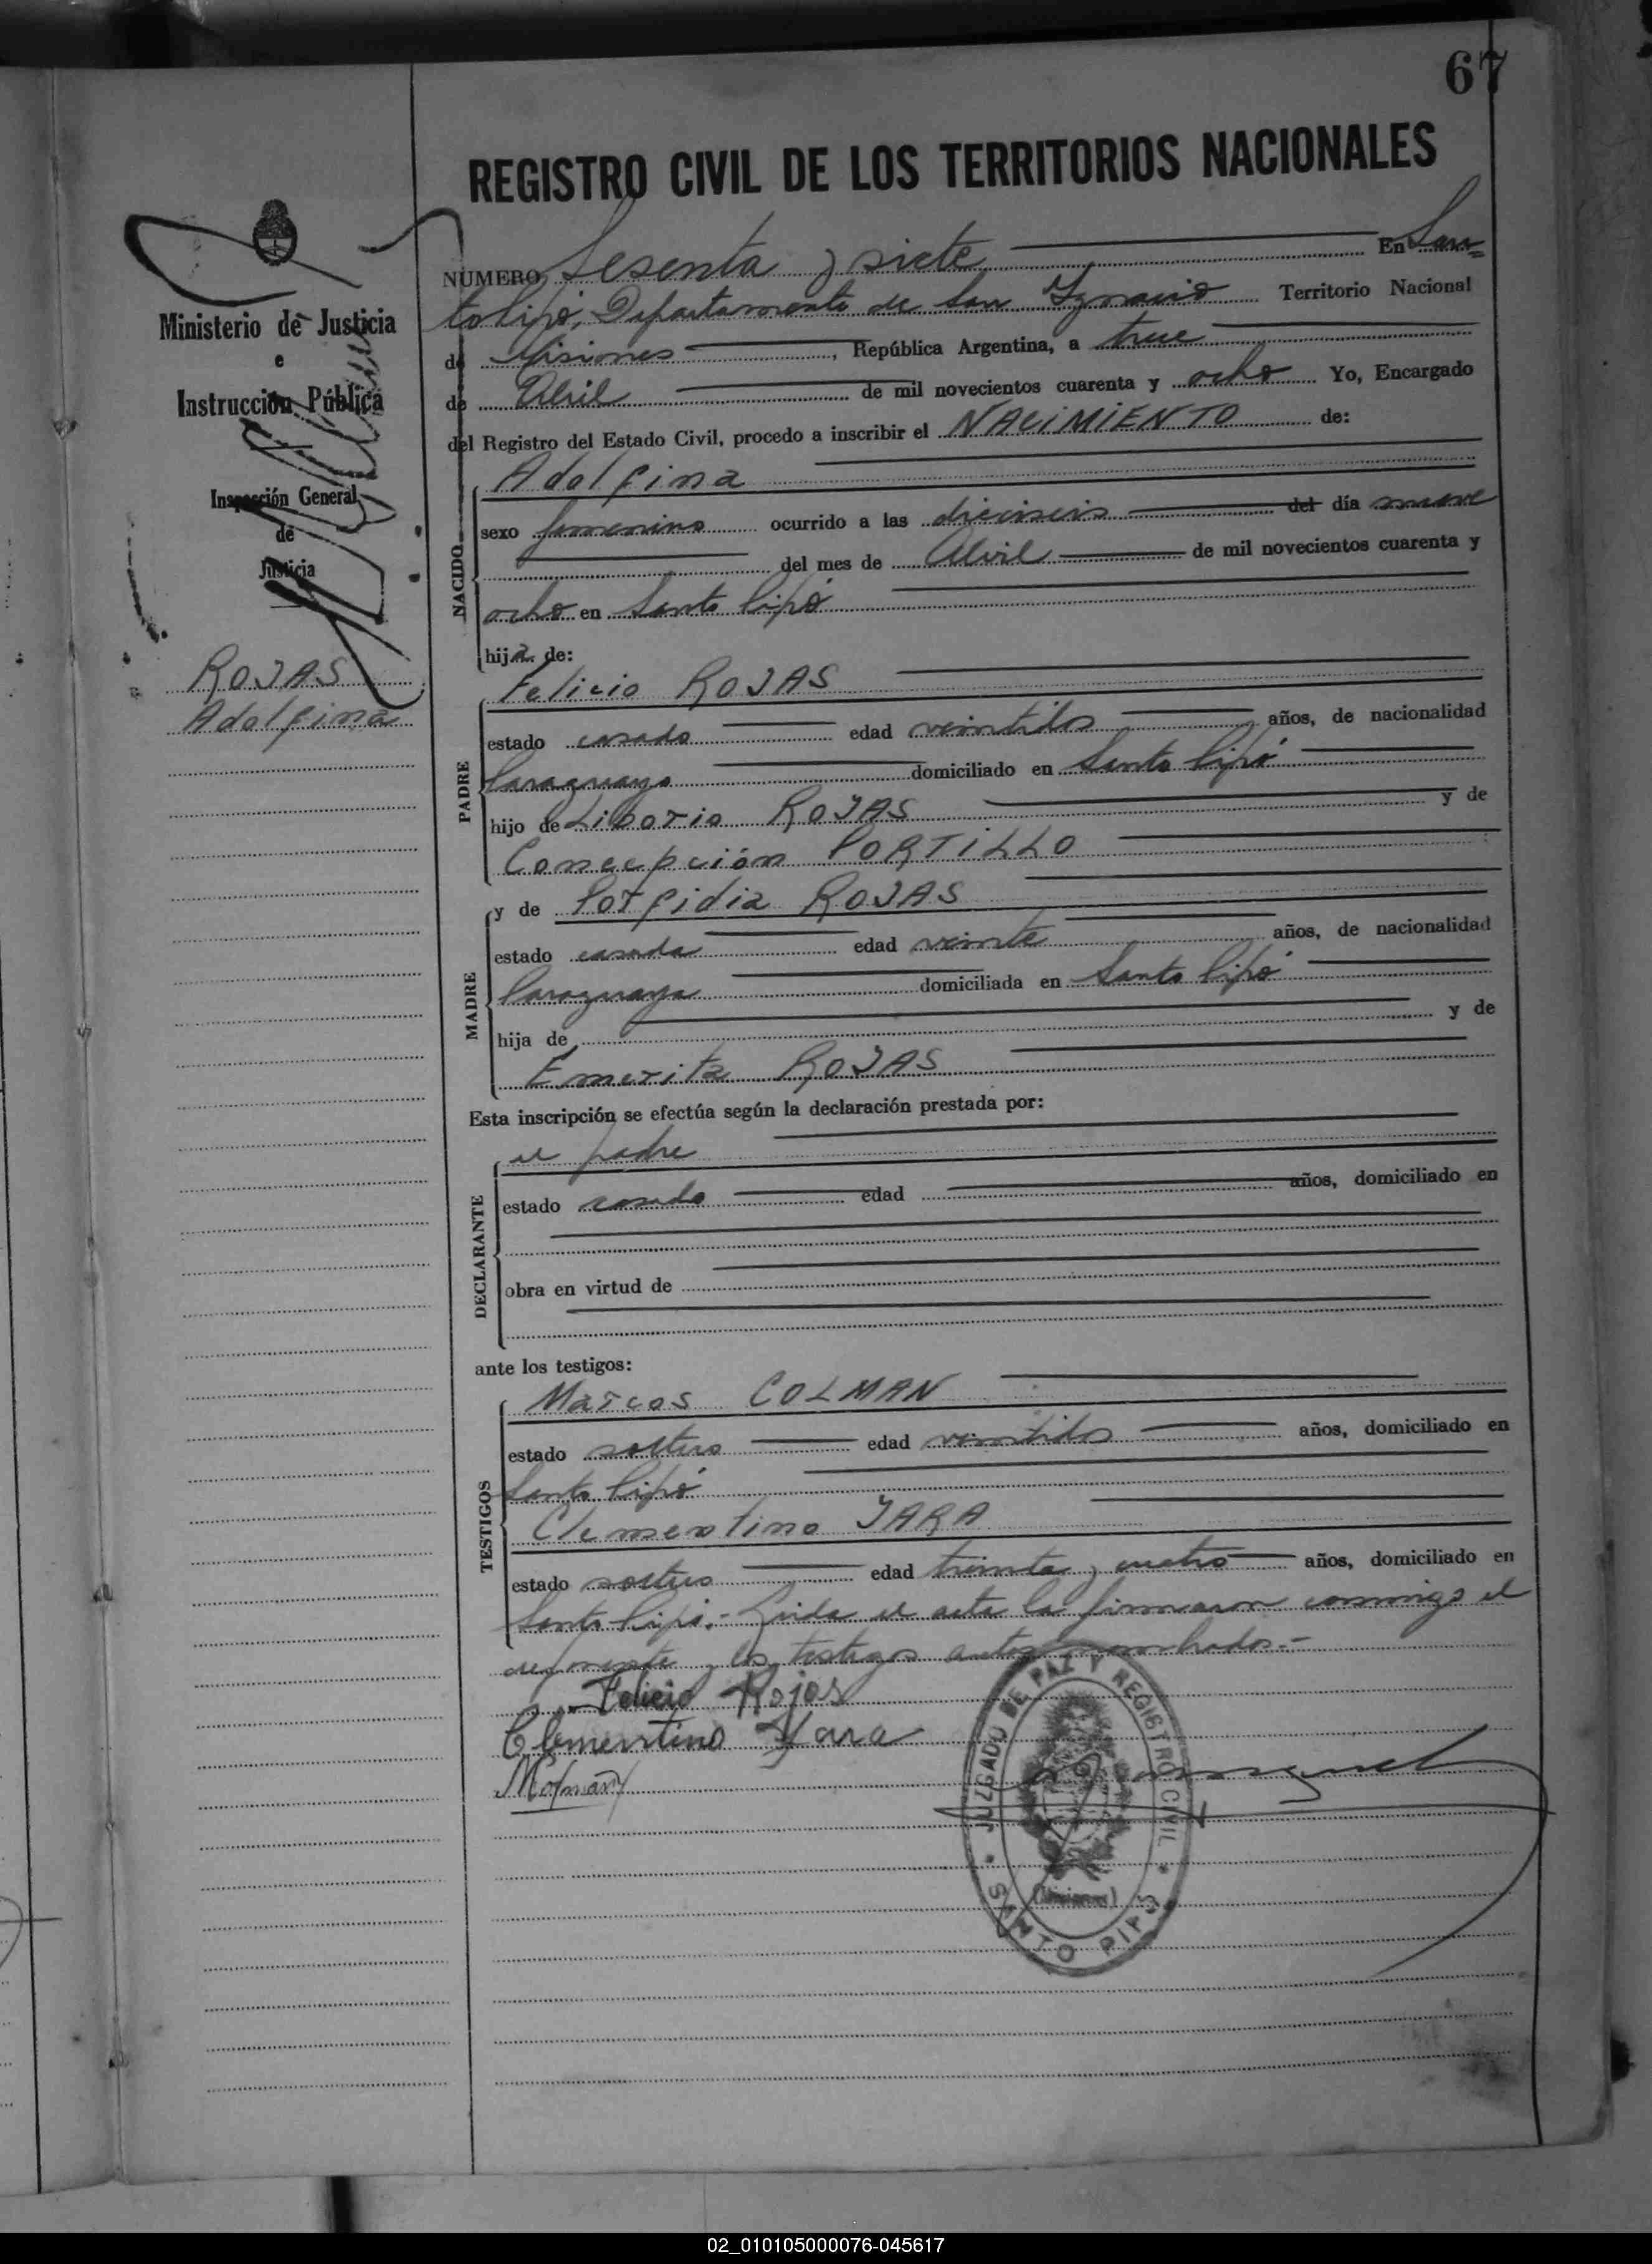 67
REGISTRO CIVIL DE LOS TERRITORIOS NACIONALES
Ministerio de Justicia
e
Instrucción Pública
Inspección General
de
Justicia
ROJAS
Adolfina
NÚMERO Sesenta y siete En San=
to Pipó, Departamento de San Ygnacio Territorio Nacional
de Misiones, República Argentina, a trece
de Abril de mil novecientos cuarenta y ocho Yo, Encargado
del Registro del Estado Civil, procedo a inscribir el NACIMIENTO de:
NACIDO
Adolfina
sexo femenino ocurrido a las dieciseis del día nueve
del mes de Abril de mil novecientos cuarenta y
ocho en Santo Pipó
hija de:
PADRE
Felicio ROJAS
estado casado edad veintidos años, de nacionalidad
Paraguayo domiciliado en Santo Pipó
hijo de Liborio ROJAS y de
Concepción PORTILLO
MADRE
y de Porfidia ROJAS
estado casada edad veinte años, de nacionalidad
Paraguaya domiciliada en Santo Pipó
hija de y de
Emerita ROJAS
Esta inscripción se efectúa según la declaración prestada por:
DECLARANTE
el padre
estado casado edad años, domiciliado en
obra en virtud de
ante los testigos:
TESTIGOS
Marcos COLMAN
estado soltero edad veintidos años, domiciliado en
Santo Pipó
Clementino JARA
estado soltero edad treinta y cuatro años, domiciliado en
Santo Pipó.- Leida el acta la firmaron conmigo el
deponente y los testigos antes nombrados.-
Felicio Rojas
Clementino Jara
MColman
JUZGADO DE PAZ Y REGISTRO CIVIL
(Misiones)
SANTO PIPÓ
02_010105000076-045617